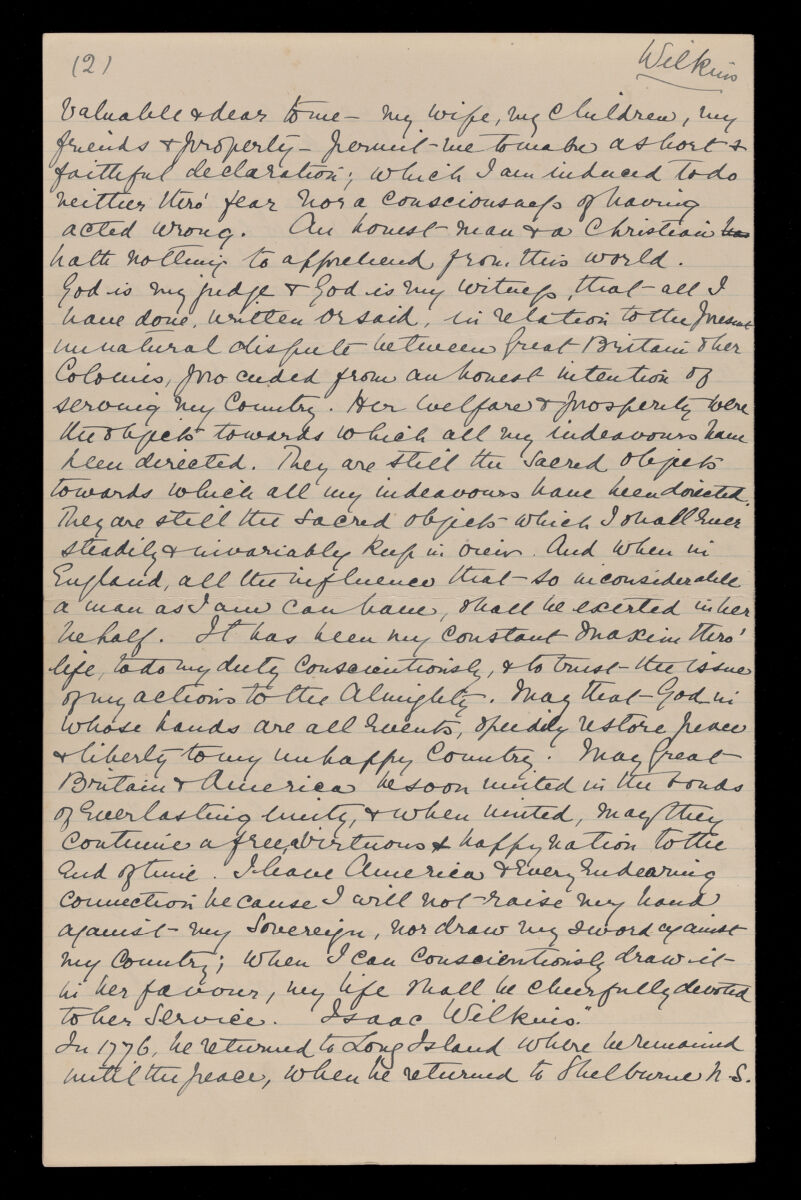 (2)
Wilkins
valuable & dear to me - my wife, my children, my
friends & property - permit me to make a short &
faithful declaration; which I am induced to do
neither thro' fear nor a consciousness of having
acted wrong. An honest man & a Christian has
hath nothing to apprehend from this world.
God is my judge & God is my witness, that all I
have done, written or said, in relation to the present
unnatural dispute between Great Britain & her
Colonies, proceeded from an honest intention of
serving my Country. Her welfare & prosperity were
the objects towards which all my indeavours have
been directed. They are still the sacred objects
towards which all my indeavours have been directed.
They are still the sacred objects which I shall ever
steadily & invariably keep in view. And when in
England, all the influence that so inconsiderable
a man as I am can have, shall be exerted in her
behalf. It has been my constant maxim thro'
life, to do my duty conscientiously, & to trust the issue
of my actions to the Almighty. May that God in
whose hands are all events, speedily restore peace
& liberty to my unhappy Country. May Great
Britain & America be soon united in the bonds
of everlasting unity, & when united, may they
continue a free, virtuous & happy nation to the
end of time. I leave America & every endearing
connection because I will not raise my hand
against my Sovereign, nor draw my sword against
my Country; when I can conscientiously draw it
in her favour, my life shall be cheerfully devoted
to her service. Isaac Wilkins."
In 1776, he returned to Long Island where he remained
until the peace, when he returned to Shelburne N.S.